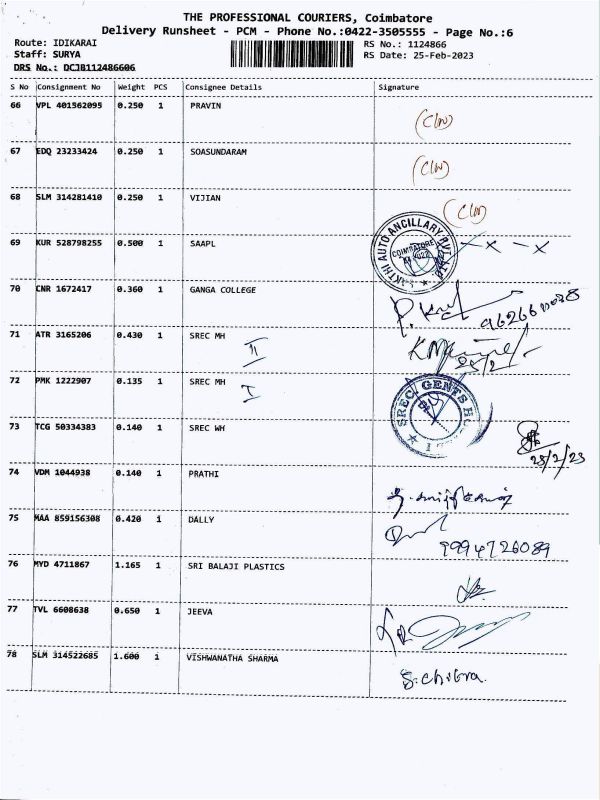 THE PROFESSIONAL COURIERS, Coimbatore
Delivery Runsheet - PCM - Phone No.:0422-3505555 - Page No.:6
Route: IDIKARAI RS No.: 1124866
Staff: SURYA RS Date: 25-Feb-2023
DRS No.: DCJB112486606
S No Consignment No Weight PCS Consignee Details Signature
66 VPL 401562095 0.250 1 PRAVIN
(CIN)
67 EDQ 23233424 0.250 1 SOASUNDARAM
(CIN)
68 SLM 314281410 0.250 1 VIJIAN
(CIN)
69 KUR 528798255 0.500 1 SAAPL
SAKTHI AUTO ANCILLARY PVT LTD
COIMBATORE
x - x
70 CNR 1672417 0.360 1 GANGA COLLEGE
71 ATR 3165206 0.430 1 SREC MH II
25/2
72 PMK 1222907 0.135 1 SREC MH I
SREC. GENTS
73 TCG 50334383 0.140 1 SREC WH
25/2/23
74 VDM 1044938 0.140 1 PRATHI
75 MAA 859156308 0.420 1 DALLY
9994726089
76 MYD 4711867 1.165 1 SRI BALAJI PLASTICS
77 TVL 6608638 0.650 1 JEEVA
78 SLM 314522685 1.600 1 VISHWANATHA SHARMA
S. Chitra.